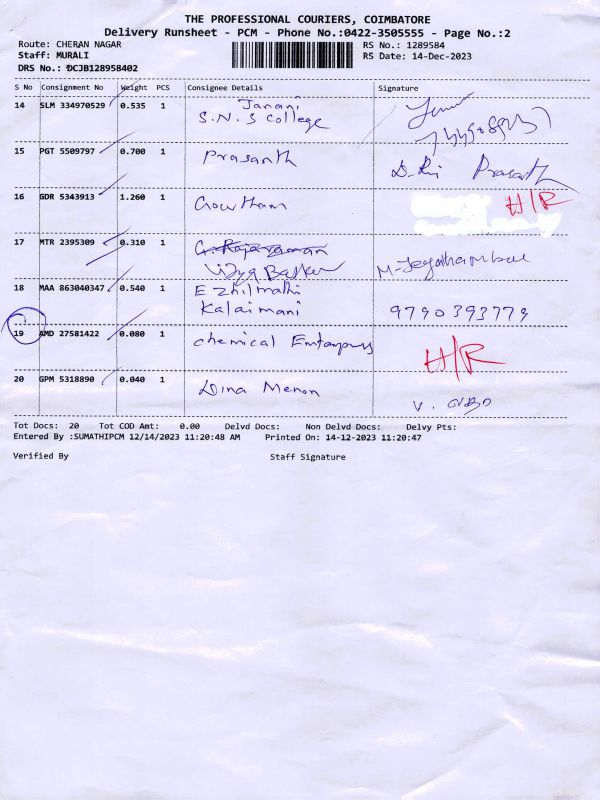 THE PROFESSIONAL COURIERS, COIMBATORE
Delivery Runsheet - PCM - Phone No.:0422-3505555 - Page No.:2
Route: CHERAN NAGAR
RS No.: 1289584
Staff: MURALI
RS Date: 14-Dec-2023
DRS No.: DCJB128958402
S No Consignment No Weight PCS Consignee Details Signature
14 SLM 334970529 0.535 1 Janani
S.N.S College
15 PGT 5509797 0.700 1 Prasanth Prasanth
16 GDR 5343913 1.260 1 Gowtham H/R
17 MTR 2395309 0.310 1 G. Rajaraman
Vidya Basker M-Jegathambal
18 MAA 863040347 0.540 1 Ezhilmathi
Kalaimani 9790393779
19 AMD 27581422 0.080 1 chemical Enterprises H/R
20 GPM 5318890 0.040 1 Dina Menon V.
Tot Docs: 20 Tot COD Amt: 0.00 Delvd Docs: Non Delvd Docs: Delvy Pts:
Entered By :SUMATHIPCM 12/14/2023 11:20:48 AM Printed On: 14-12-2023 11:20:47
Verified By Staff Signature